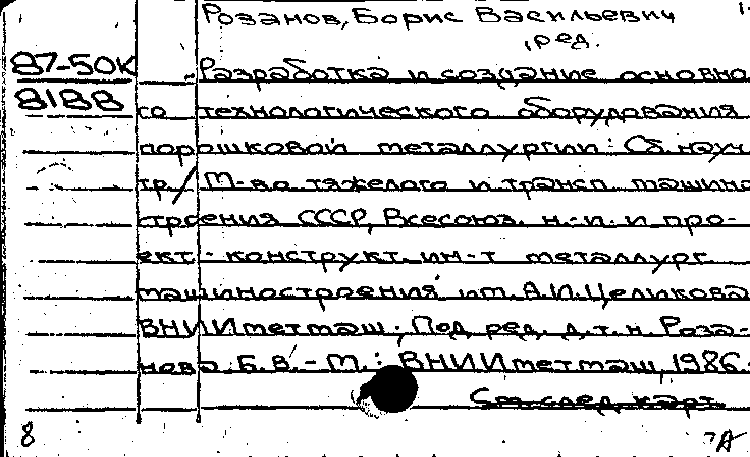 Розанов, Борис Васильевич
, ред.
87-50К
8188
Разработка и создание основно
го технологического оборудования
порошковой металлургии: Сб. науч
тр./ М-во тяжелого и трансп. машино
строения СССР, Всесоюз. н.-и. и про-
ект.-конструкт. ин-т металлург
машиностроения им. А.И.Целикова
ВНИИметмаш; Под ред. д.т.н. Роза-
нова Б.В. - М.: ВНИИметмаш, 1986.
См. след. карт.
8